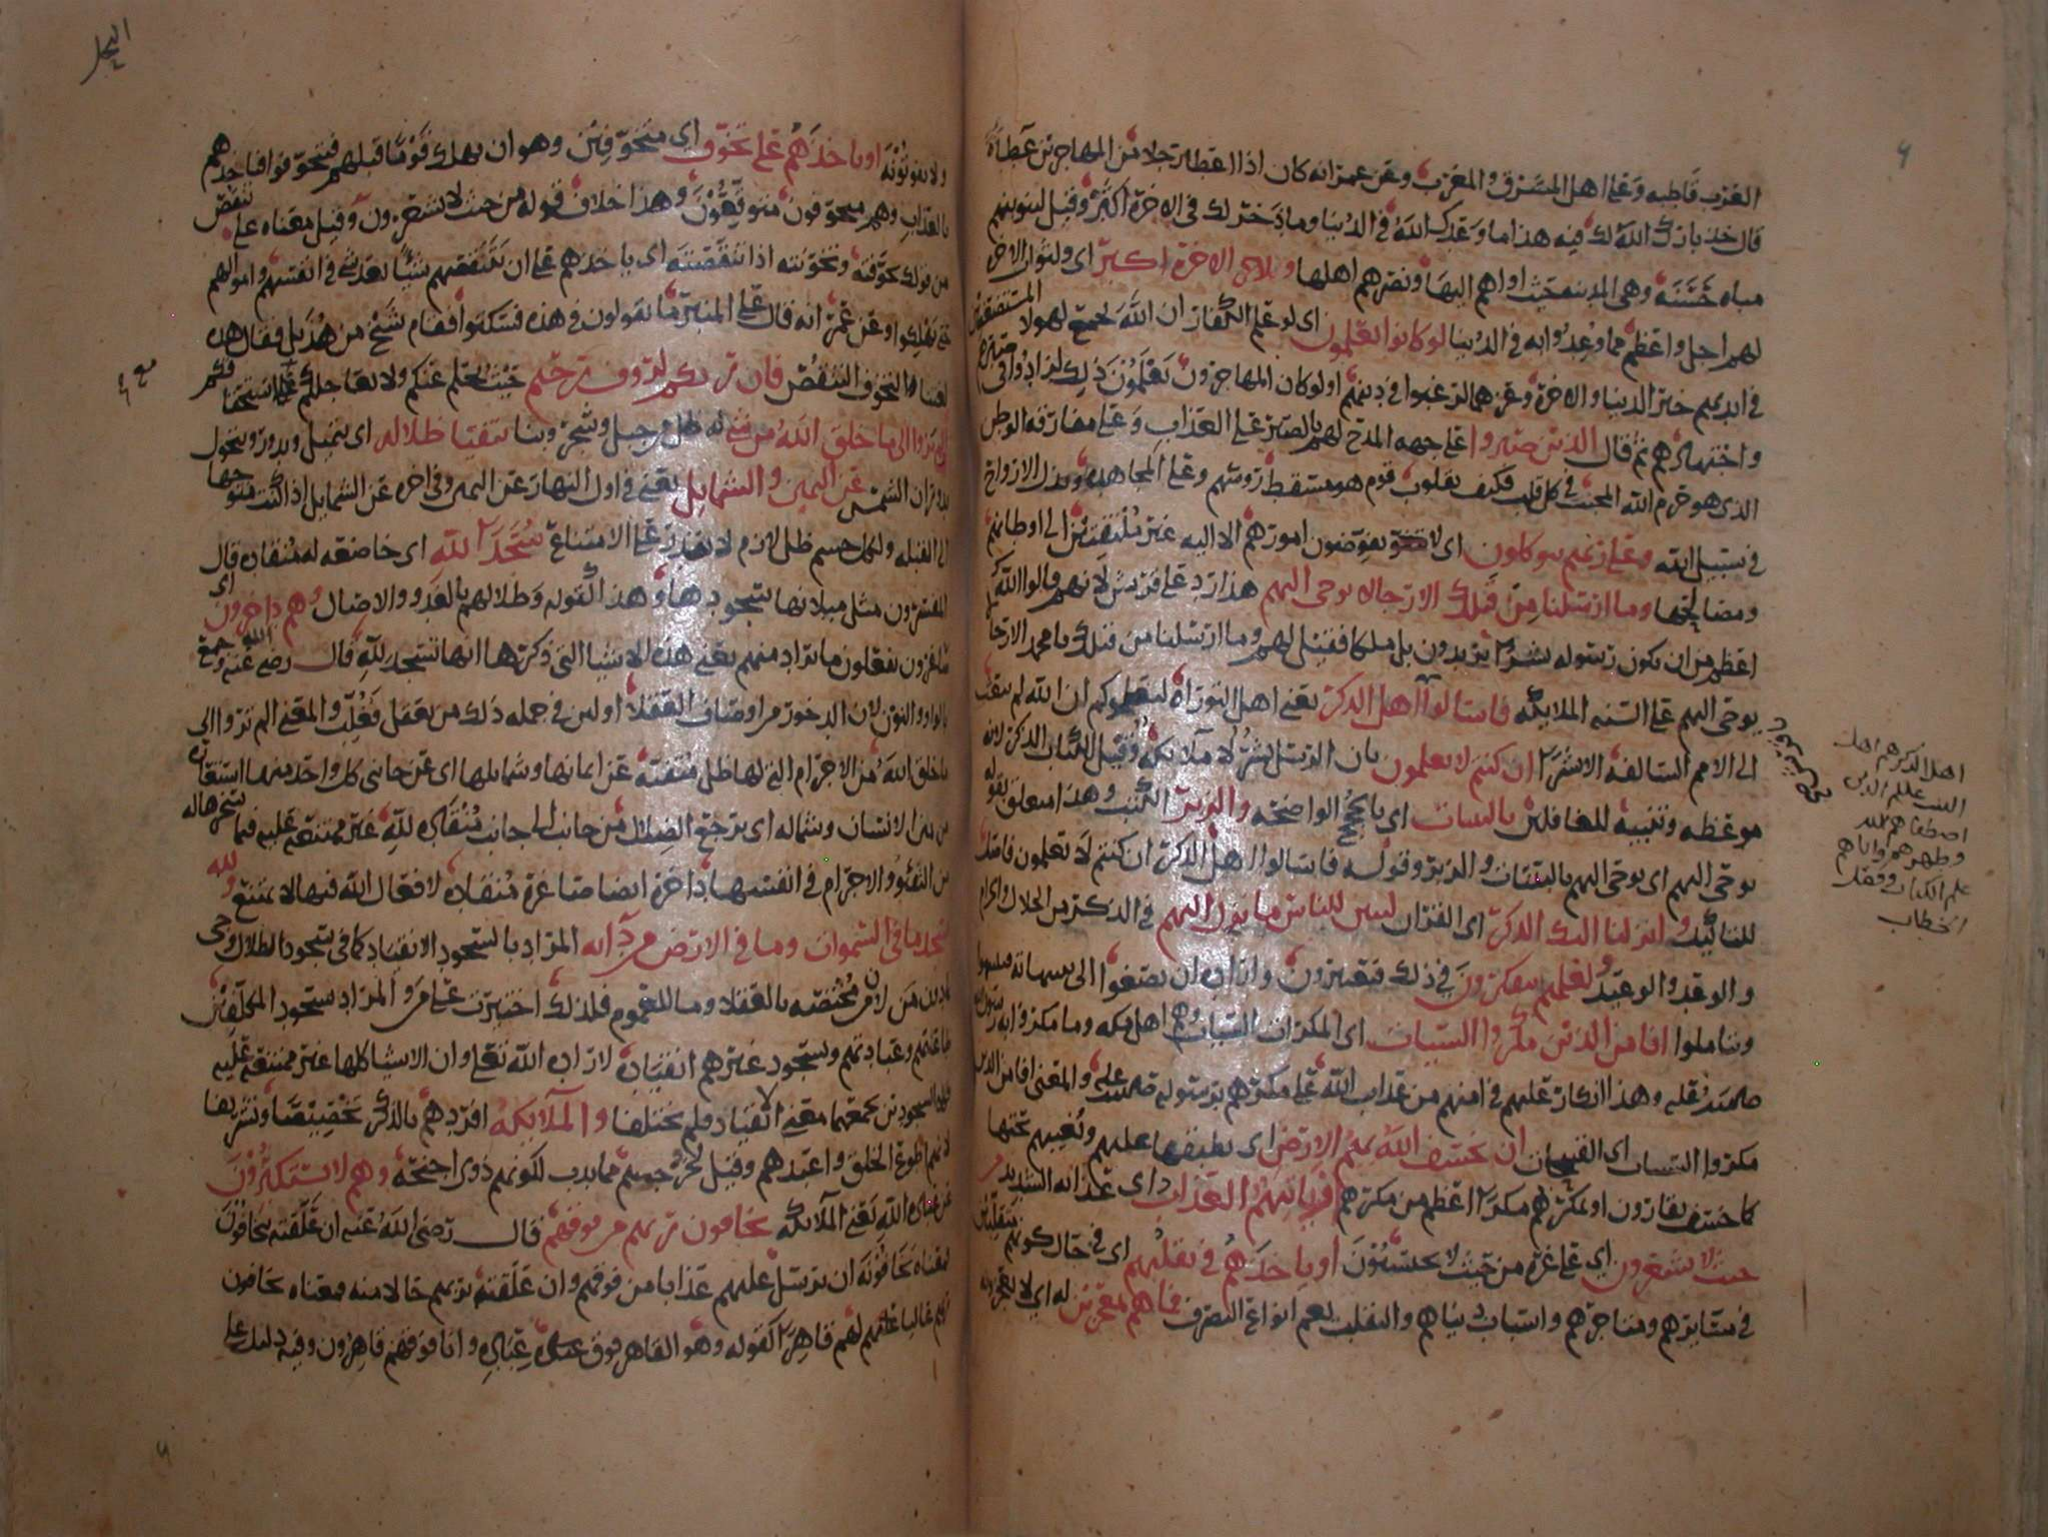 العرب قاطبه وعلى اهل المشرق والمغرب وعن عمر انه كان اذا اعطى رجلا من المهاجرين عطاه
قال خذ بارك الله لك فيه هذا ما وعدك الله في الدنيا وما ذخر لك في الاخرة اكثر وقيل لنبوينهم
مباه حسنة وهي المدينه حيث اواهم اليها ونصرهم اهلها ولاجر الاخرة اكبر اي ولثواب الاخره
لهم اجل واعظم مما وعدوا به في الدنيا لو كانوا يعلمون اي لو علم الكفار ان الله يجمع لهولا المستضعفين
في ايديهم خير الدنيا والاخرة وعزهما لرغبوا في دينهم او لو كان المهاجرون يعلمون ذلك لزادوا في صبرهم
واجتهادهم ثم قال الذين صبروا على جهه المدح لهم بالصبر على العذاب وعلى مفارقه الوطن
الذي هو حرم الله المحبب في كل قلب فكيف بقلوب قوم هو مسقط روسهم وعلى المجاهدة وبذل الارواح
في سبيل الله وعلى ربهم يتوكلون اي يفوضون امورهم الا اليه غير ملتفتين الى اوطانهم
ومصالحها وما ارسلنا من قبلك الا رجالا يوحى اليهم هذا رد على قريش لانهم قالوا الله
اعظم من ان يكون رسوله بشرا يريدون بل ملكا فقيل لهم وما ارسلنا من قبلك يا محمد الا رجالا
يوحى اليهم على السنه الملايكه فاسالوا اهل الذكر يعني اهل التوراة ليعلموكم ان الله لم يبعث
الى الامم السالفه الا بشرا ان كنتم لا تعلمون بان الرسل بشر لا ملايكة وقيل للكتاب الذكر لانه
موعظه وتنبيه للغافلين بالبينات اي بالحجج الواضحه والزبر الكتب وهذا متعلق بقوله
يوحى اليهم اي يوحى اليهم بالبينات والزبر وقوله فاسالوا اهل الذكر ان كنتم لا تعلمون فاصل
للتاكيد وانزلنا اليك الذكر اي القران لتبين للناس ما نزل اليهم في الذكر من الحلال والحرام
والوعد والوعيد ولعلهم يتفكرون في ذلك فيعتبرون واراده ان يصغوا الى تنبيهاته فيتنبهوا
ويتاملوا افامن الذين مكروا السيئات اي المكرات السيئات وهم اهل مكه وما مكروا به رسول الله
صلى الله عليه وهذا انكار عليهم في امنهم من عذاب الله على مكرهم برسوله صلى الله عليه والمعنى افامن الذين
مكروا السيئات اي القبيحات ان يخسف الله بهم الارض اي يطبقها عليهم ويغيبهم تحتها
كما خسف بقارون او يمكر بهم مكرا اعظم من مكرهم او ياتيهم العذاب اي عذابه الشديد من
حيث لا يشعرون اي على غرة من حيث لا يحتسبون او ياخذهم في تقلبهم اي في حال كونهم متقلبين
في مسايرهم ومتاجرهم واسباب دنياهم والتقلب يعم انواع التصرف فما هم بمعجزين له اي لا يعجزونه
اهل الذكر هم اهل
البيت عليهم
اصطفاهم الله
وطهرهم واتاهم
علم الكتاب وفصل
الخطاب
النحل
ولا يفوتونه او ياخذهم على تخوف اي متخوفين وهو ان يهلك قوما قبلهم فيتخوفوا فياخذهم
بالعذاب وهم متخوفون متوقعون وهذا خلاف قوله من حيث لا يشعرون وقيل معناه على تنقص
من قولك تخوفته وتخونته اذا تنقصته اي ياخذهم على ان يتنقصهم شيئا بعد شي في انفسهم واموالهم
حتى يهلكوا وعن عمر انه قال على المنبر ما تقولون في هذه فسكتوا فقام شيخ من هذيل فقال هذه
لغتنا التخوف التنقص فان ربكم لروف رحيم حيث يحلم عنكم ولا يعاجلكم على استحقاقكم
اولم يروا الى ما خلق الله من شي له ظل من جبل وشجر وبنا يتفيا ظلاله اي يتميل ويدور ويتحول
بدوران الشمس عن اليمين والشمايل يعني في اول النهار عن اليمين وفي اخره عن الشمايل اذا كنت متوجها
الى القبله ولكل جسم ظل لازم لا يقدر على الامتناع سجدا لله اي خاضعه له منقاده قال
المفسرون مثل ميلانها سجودها وهذا كقوله وظلالهم بالغدو والاصال وهم داخرون اي
صاغرون يفعلون ما يراد منهم يعني هذه الاشيا التي ذكرها انها تسجد لله قال رضي الله عنه وجمع
بالواو والنون لان الدخور من اوصاف العقلا او لان في جمله ذلك من يعقل فغلب والمعنى الم تروا الى
ما خلق الله من الاجرام التي لها ظل متفيئة عن ايمانها وشمايلها اي عن جانبي كل واحد منها استعارة
من يمين الانسان وشماله اي ترجع الضلال من جانب الى جانب منقاده لله غير ممتنعه عليه فيما سخرها له
من التفيؤ والاجرام في انفسها داخرة ايضا صاغرة منقادة لافعال الله فيها لا تمتنع ولله
يسجد ما في السموات وما في الارض من دابه المراد بالسجود الانقياد كما في سجود الظلال وجي
بما دون من لان من مختصه بالعقلا وما للعموم فلذلك اختيرت على من والمراد بسجود المكلفين
طاعتهم وعبادتهم وسجود غيرهم انقياده لاراده الله تعلى وان الاشيا كلها غير ممتنعه عليه
السجودين يجمعهما معنى الانقياد فلم يختلفا والملايكه افردهم بالذكر تخصيصا وتشريفا
لانهم اطوع الخلق واعبدهم وقيل لخروجهم مما يدب لكونهم ذوي اجنحة وهم لا يستكبرون
عن عباده الله يعني الملايكه يخافون ربهم من فوقهم قال رضي الله عنه ان علقته بيخافون
فمعناه يخافونه ان يرسل عليهم عذابا من فوقهم وان علقته بربهم حالا منه فمعناه يخافون
ربهم غالبا عليهم لهم قاهرا كقوله وهو القاهر فوق عباده وانا فوقهم قاهرون وفيه دليل على